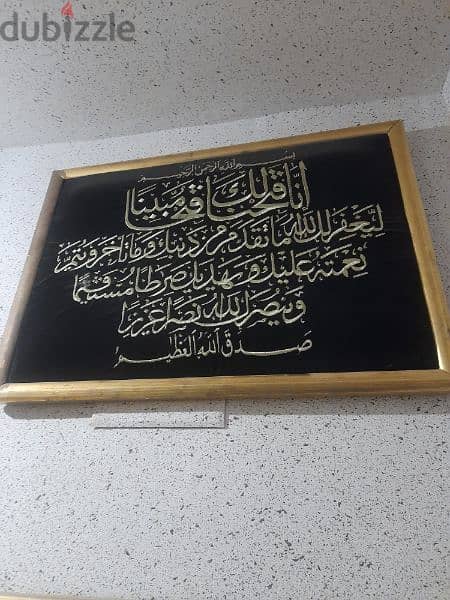 dubizzle
بسم الله الرحمن الرحيم
إنا فتحنا لك فتحا مبينا
ليغفر لك الله ما تقدم من ذنبك وما تأخر ويتم
نعمته عليك ويهديك صراطا مستقيما
وينصرك الله نصرا عزيزا
صدق الله العظيم